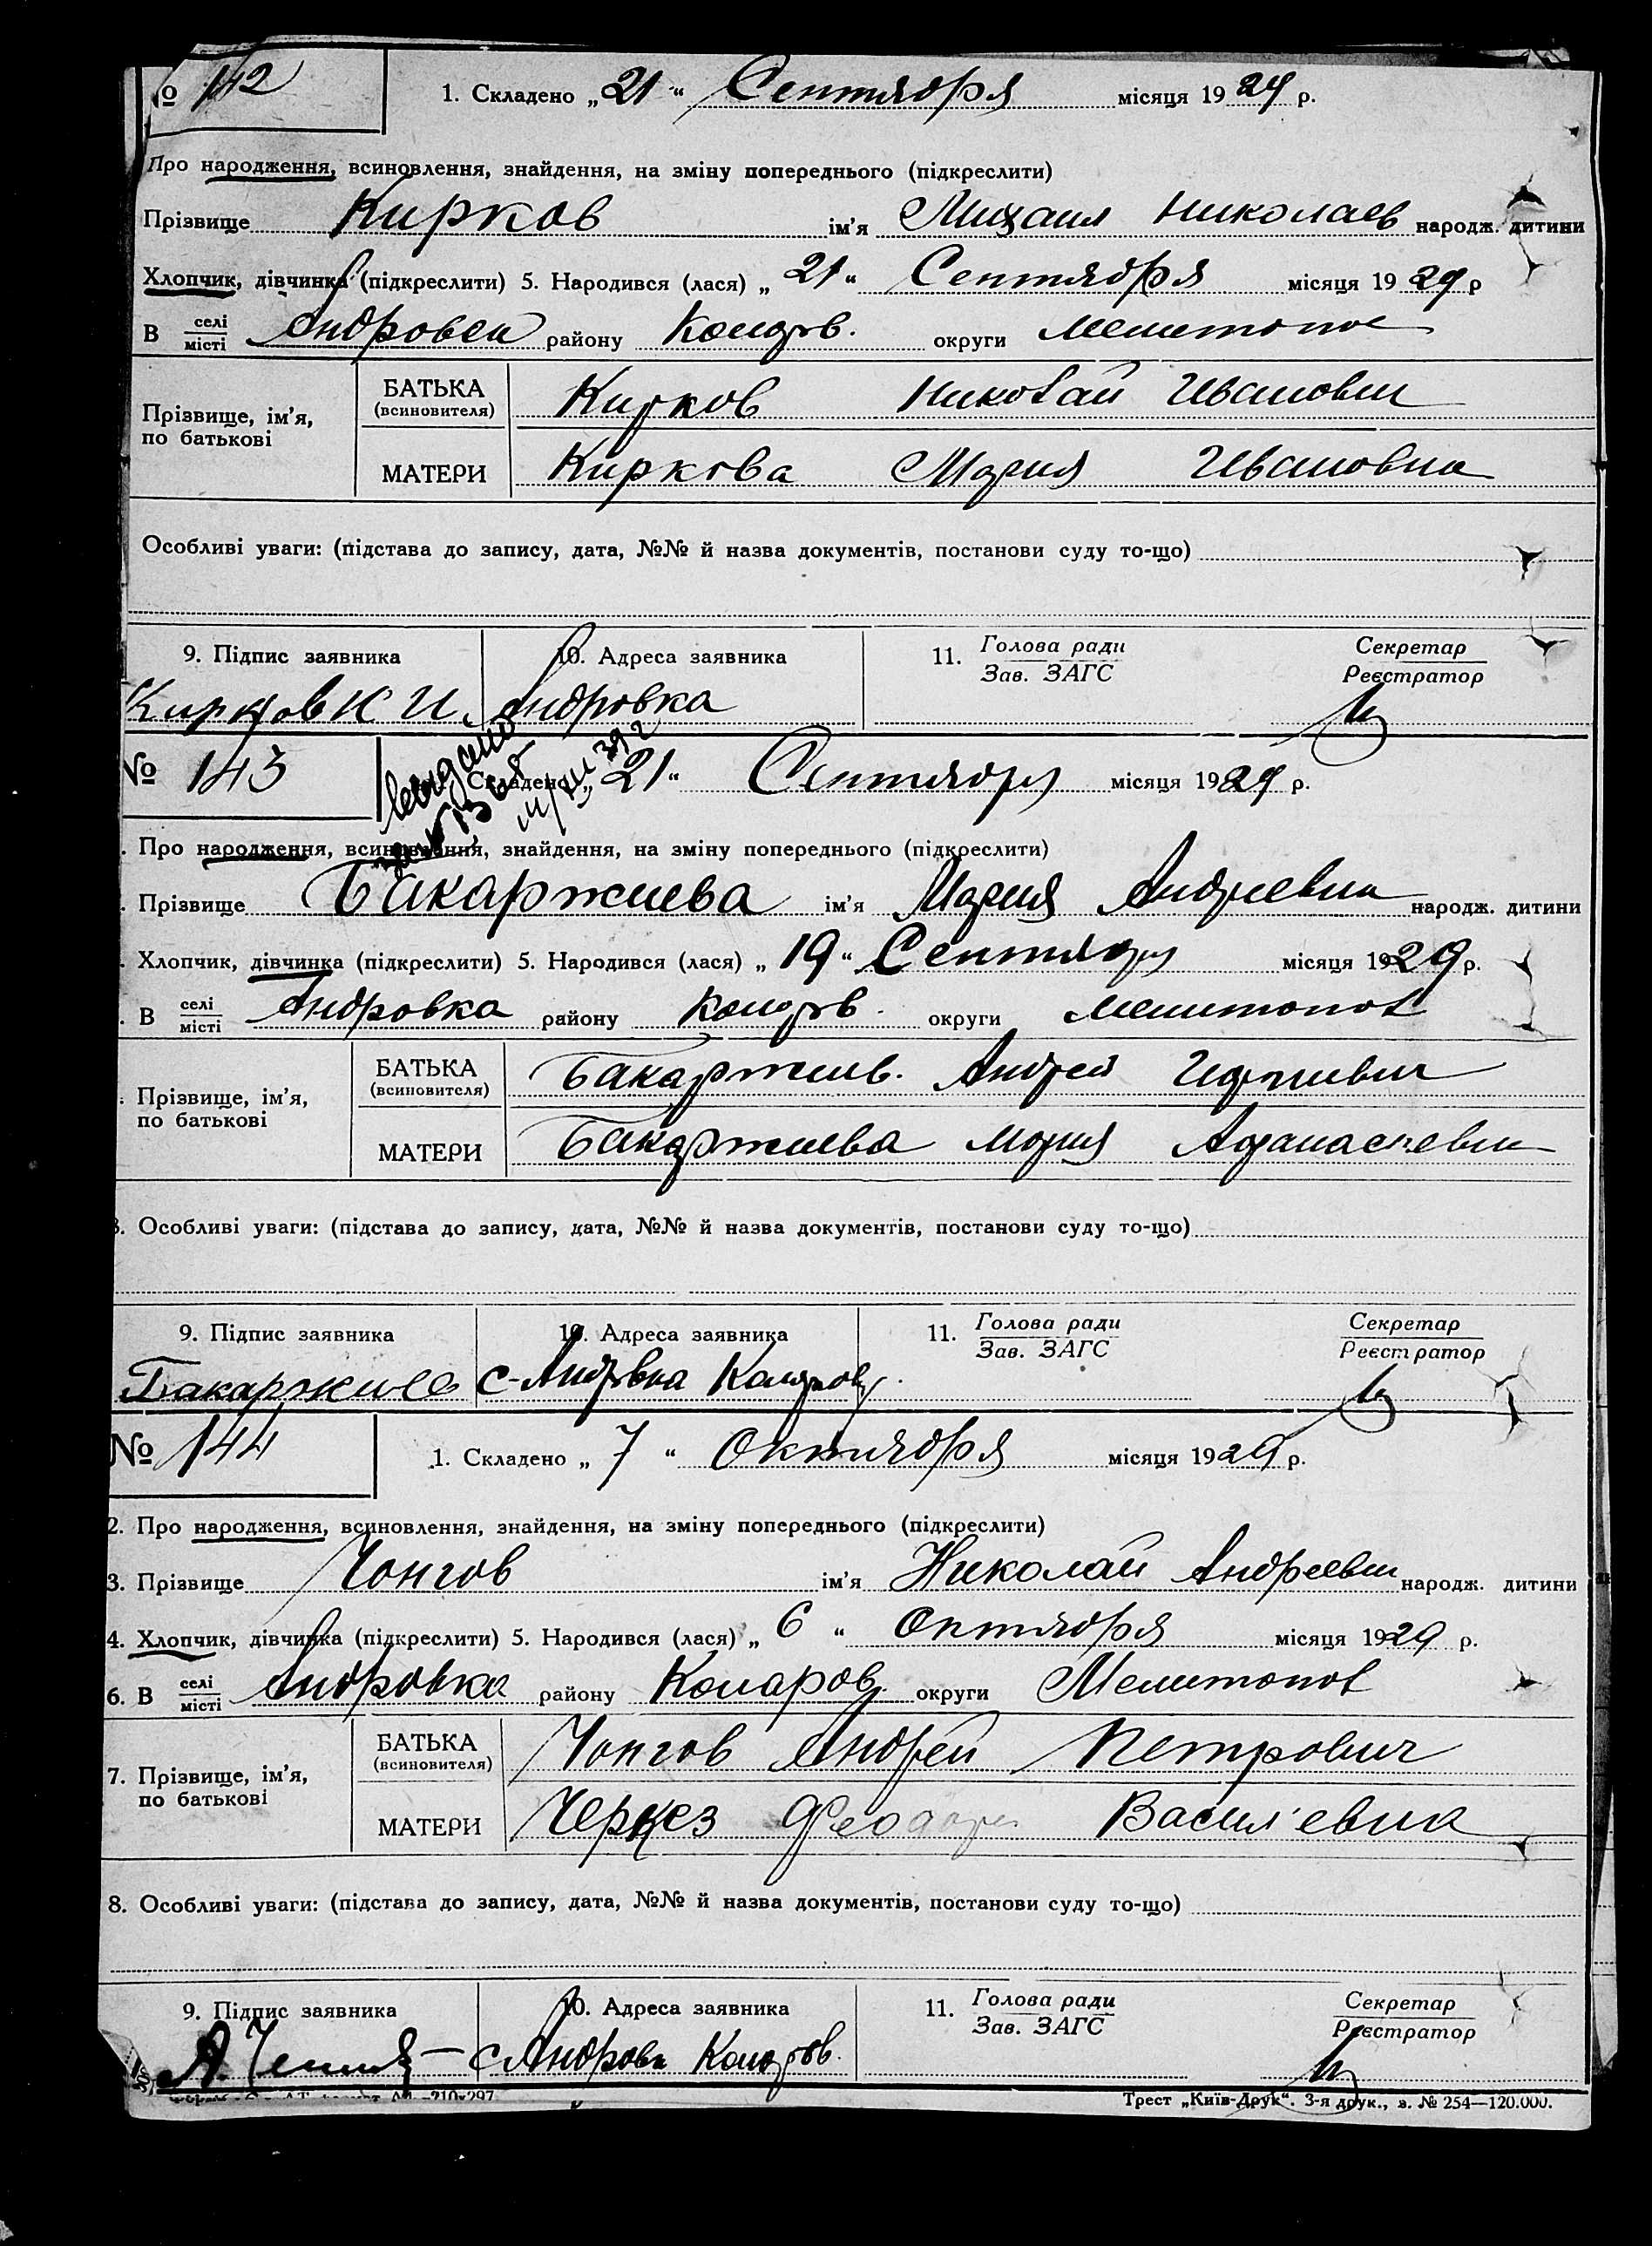 № 142
1. Складено „21“ Сентября місяця 1929 р.
Про народження, всиновлення, знайдення, на зміну попереднього (підкреслити)
Прізвище Кирков ім'я Михаил Николаев народж. дитини
Хлопчик, дівчинка (підкреслити) 5. Народився (лася) „21“ Сентября місяця 1929 р
В селі місті Андровка району округи Мелитопол
Прізвище, ім'я, по батькові
БАТЬКА (всиновителя) Кирков Николай Иванович
МАТЕРИ Киркова Мария Ивановна
Особливі уваги: (підстава до запису, дата, №№ й назва документів, постанови суду то-що)
9. Підпис заявника 10. Адреса заявника 11. Голова ради Зав. ЗАГС Секретар Реєстратор
Кирков Н И. Андровка
№ 143
Складено „21“ Сентября місяця 1929 р.
. Про народження, всиновлення, знайдення, на зміну попереднього (підкреслити)
. Прізвище Бакаржиева ім'я Мария Андреевна народж. дитини
. Хлопчик, дівчинка (підкреслити) 5. Народився (лася) „19“ Сентября місяця 1929 р.
. В селі місті Андровка району округи Мелитопол
. Прізвище, ім'я, по батькові
БАТЬКА (всиновителя) Бакаржиев. Андрей
МАТЕРИ Бакаржиева Мария Афанасьевна
8. Особливі уваги: (підстава до запису, дата, №№ й назва документів, постанови суду то-що)
9. Підпис заявника 10. Адреса заявника 11. Голова ради Зав. ЗАГС Секретар Реєстратор
Бакаржиев
№ 144
1. Складено „7“ Октября місяця 1929 р.
2. Про народження, всиновлення, знайдення, на зміну попереднього (підкреслити)
3. Прізвище Чонгов ім'я Николай Андреевич народж. дитини
4. Хлопчик, дівчинка (підкреслити) 5. Народився (лася) „6“ Октября місяця 1929 р.
6. В селі місті Андровка району Коларов. округи Мелитопол
7. Прізвище, ім'я, по батькові
БАТЬКА (всиновителя) Чонгов Андрей Петрович
МАТЕРИ Черкез Феодора Васил'евна
8. Особливі уваги: (підстава до запису, дата, №№ й назва документів, постанови суду то-що)
9. Підпис заявника 10. Адреса заявника 11. Голова ради Зав. ЗАГС Секретар Реєстратор
Трест „Київ-Друк“. 3-я друк., з. № 254—120.000.